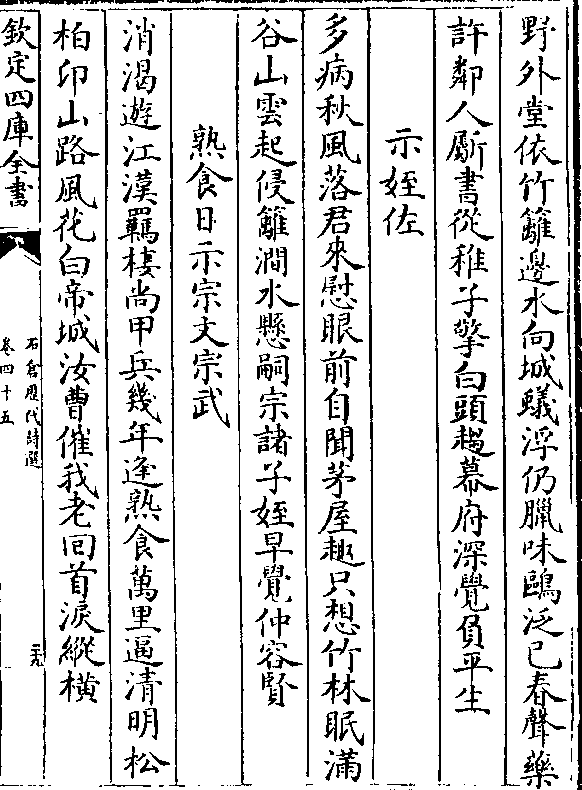 野外堂依竹籬邊水向城蟻浮仍臘味鷗泛已春聲藥
許鄰人斸書從稚子擎白頭趨幕府深覺負平生
示姪佐
多病秋風落君來慰眼前自聞茅屋趣只想竹林眠滿
谷山雲起侵籬澗水懸嗣宗諸子姪早覺仲容賢
熟食日示宗文宗武
消渴遊江漢羈棲尚甲兵幾年逢熟食萬里逼清明松
柏卬山路風花白帝城汝曹催我老回首淚縱橫
欽定四庫全書
石倉歷代詩選
卷四十五